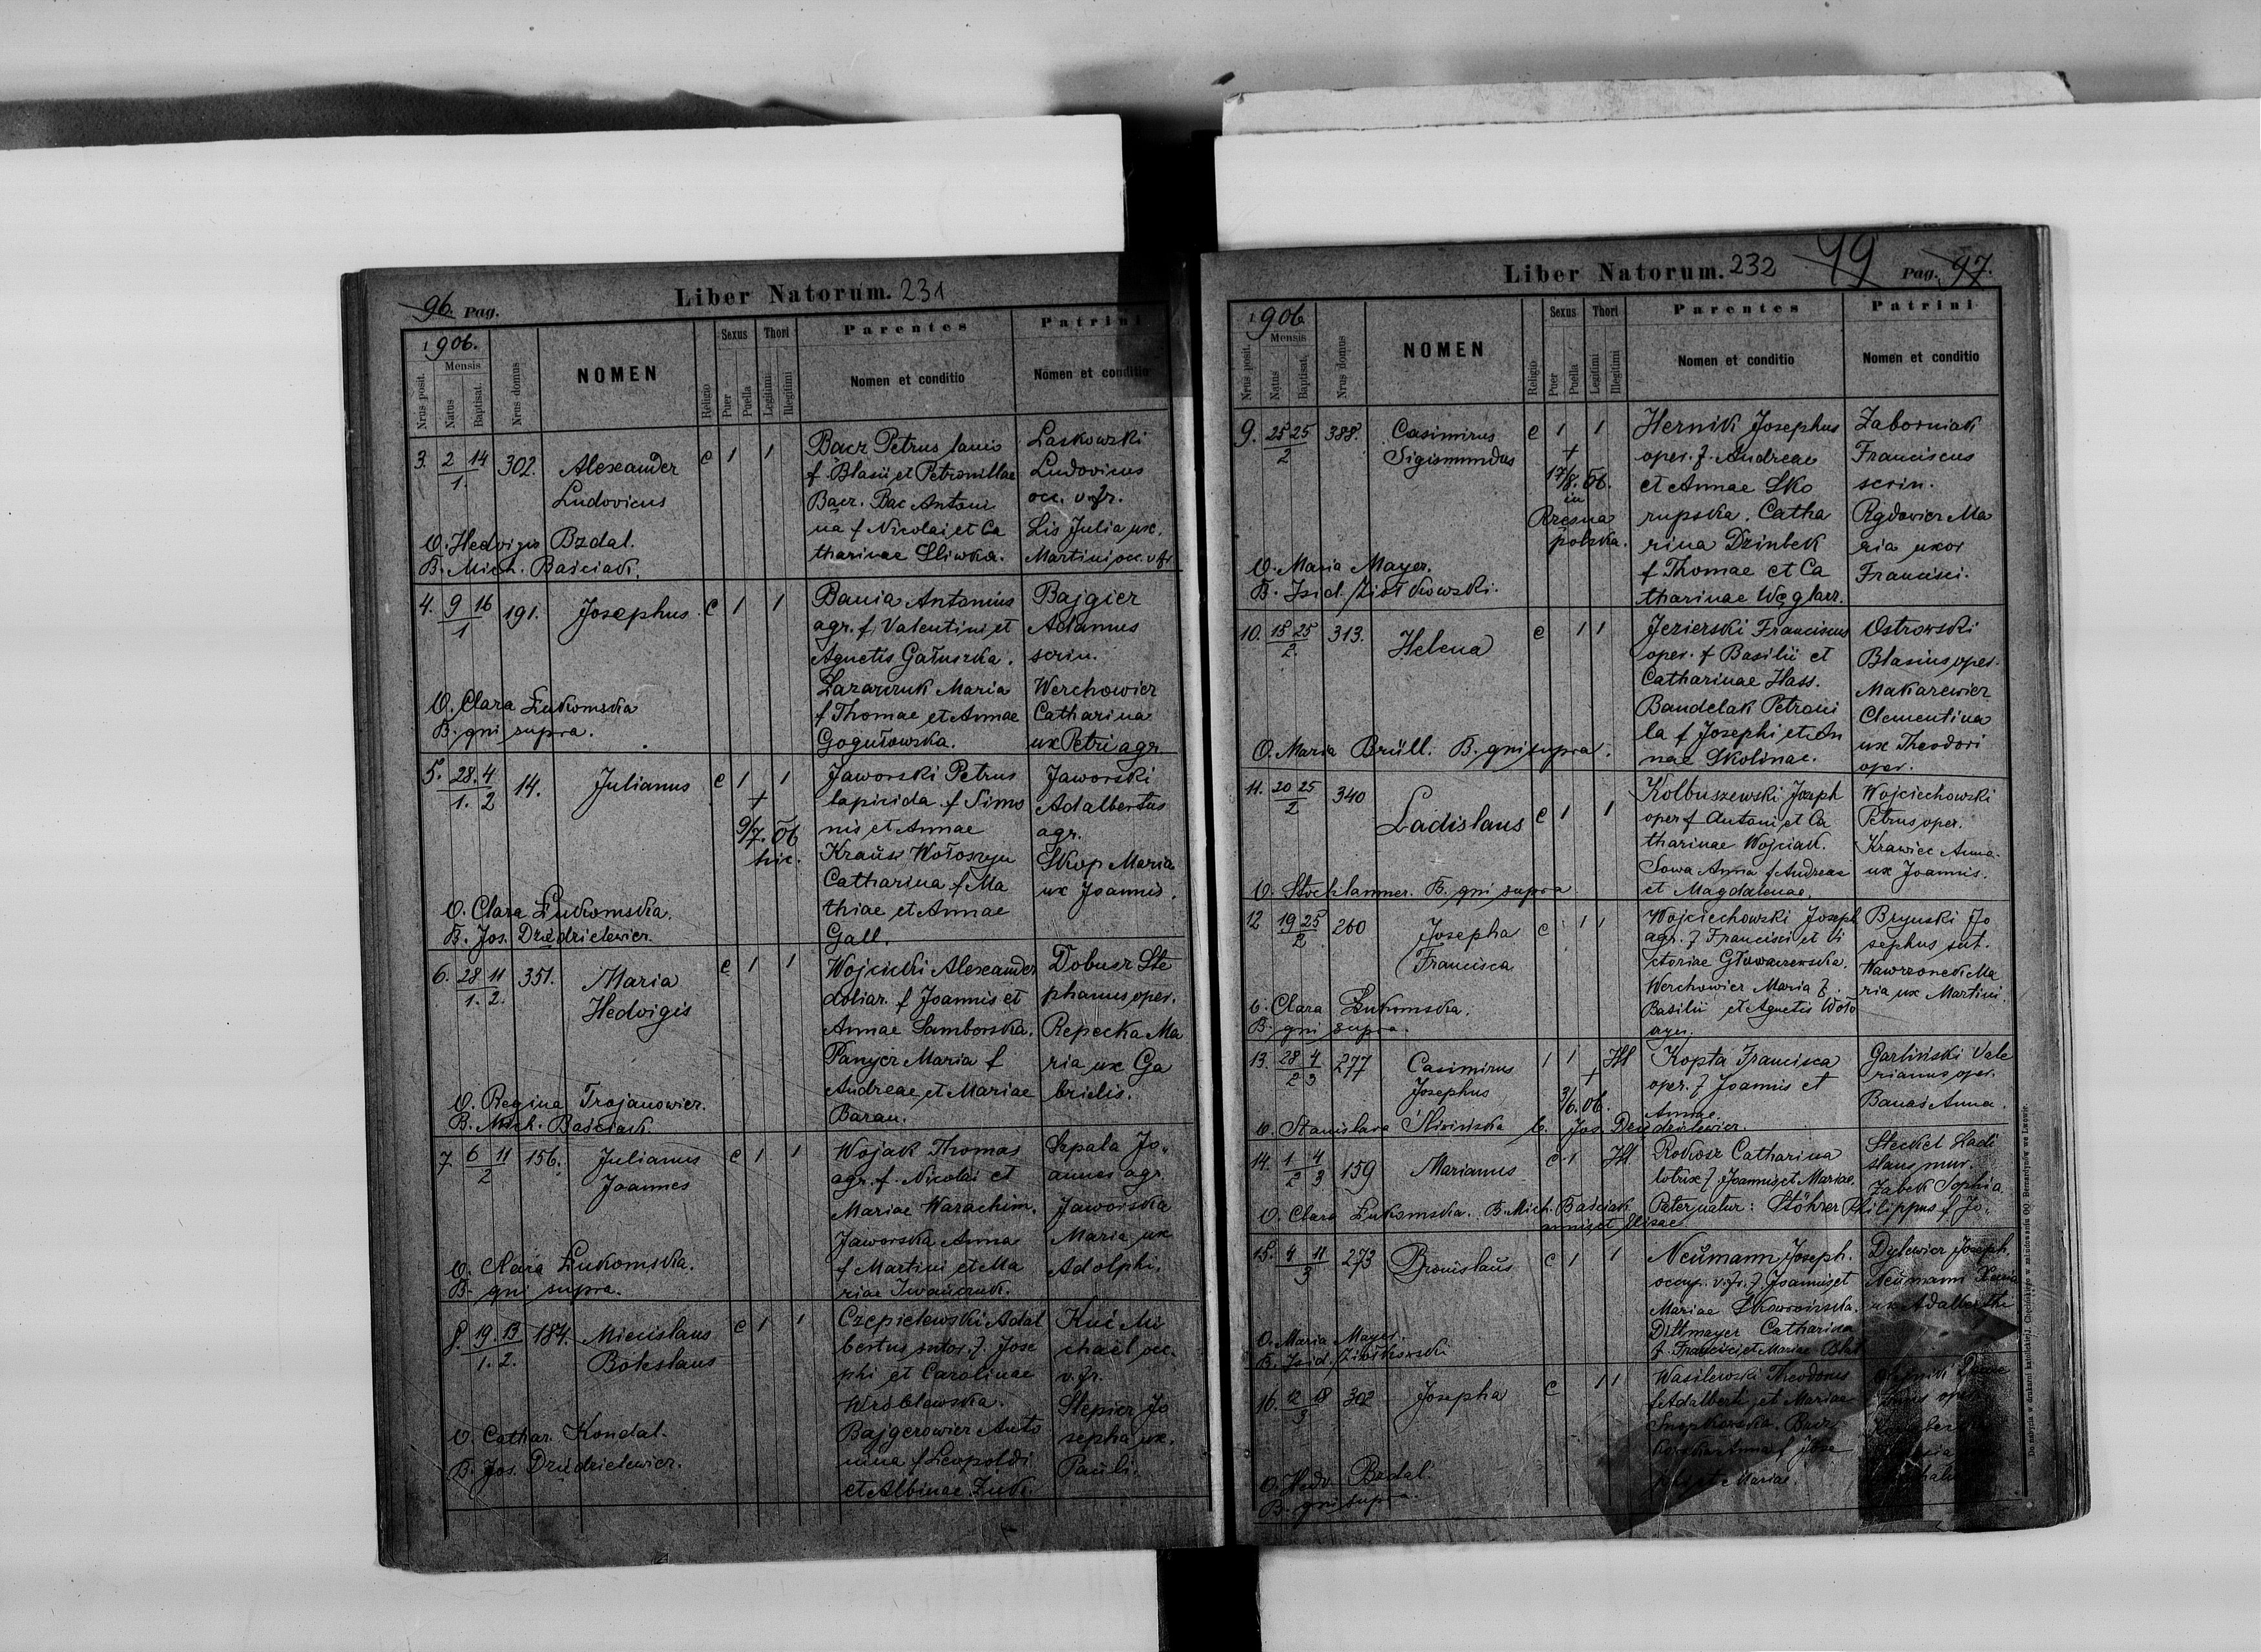 96. Pag.
Liber Natorum. 231
1906.
Nrus posit.
Mensis
Natus
Baptisat.
Nrus domus
NOMEN
Religio
Sexus
Puer
Puella
Thori
Legitimi
Illegitimi
Parentes
Nomen et conditio
Patrini
Nomen et conditio
3. 2 14 302. Alexander c 1 1
1.
Ludovicus
Bacr Petrus lanio
f. Blasii et Petronillae
Bacr. Bac Antoni
na f Nicolai et Ca
tharinae Sliwka.
Laskowski
Ludovicus
occ. v. fr.
Lis Julia ux.
Martini occ. v fr.
O. Hedvigis Bzdal.
B. Mich. Baściak.
4. 9 16 191. Josephus c 1 1
1
Bania Antonius
agr. f. Valentini et
Agnetis Gałuszka.
Lazarczuk Maria
f Thomae et Annae
Gogułowska.
Bajgier
Adamus
scrin.
Werchowicz
Catharina
ux Petri agr.
O. Clara Łukomska
B. qui supra.
5. 28. 4 14. Julianus c 1 1
1. 2
+
9/7. 06
hic.
Jaworski Petrus
lapicida f Simo
nis et Annae
Kraus Wołoszyn
Catharina f Ma
thiae et Annae
Gall.
Jaworski
Adalbertus
agr.
Skop Maria
ux Joannis.
O. Clara Łukomska.
B. Jos. Dziedzielewicz.
6. 28 11 351. Maria c 1 1
1. 2.
Hedvigis
Wojcicki Alexander
doliar. f Joannis et
Annae Samborska.
Panycz Maria f
Andreae et Mariae
Baran.
Dobusz Ste
phanus oper.
Repecka Ma
ria ux Ga
brielis.
O. Regina Trojanowicz.
B. Mich. Baściak.
7. 6 11 156. Julianus c 1 1
2
Joannes
Wojak Thomas
agr. f. Nicolai et
Mariae Warachim.
Jaworska Anna
f Martini et Ma
riae Iwańczuk.
Szpala Jo
annes agr.
Jaworska
Maria ux
Adolphi.
O. Clara Łukomska.
B. qui supra.
8. 19. 13 184. Miecislaus c 1 1
1. 2.
Boleslaus
Czepielewski Adal
bertus sutor. f. Jose
phi et Carolinae
Wróblewska.
Bajgerowicz Anto
nina f Leopoldi
et Albinae Żuk.
Knś Mi
chaël occ.
v. fr.
Stepicz Jo
sepha ux.
Pauli.
O. Cathar. Kondal.
B. Jos. Dziedzielewicz.
Liber Natorum. 232 49 Pag. 97.
1906
Nrus posit.
Mensis
Natus
Baptisat.
Nrus domus
NOMEN
Religio
Sexus
Puer
Puella
Thori
Legitimi
Illegitimi
Parentes
Nomen et conditio
Patrini
Nomen et conditio
9. 25 25 388. Casimirus c 1 1
2
Sigismundus
+
17/8. 06.
in
Rzęsna
polska.
Hernik Josephus
oper. f. Andreae
et Annae Sko
rupska. Catha
rina Dzinbek
f Thomae et Ca
tharinae Węglarz.
Zaborniak
Franciscus
scrin.
Rydowicz Ma
ria uxor
Francisci.
O. Maria Mayer.
B. Isid. Ziołkowski.
10. 15 25 313. Helena c 1 1
2.
Jezierski Franciscus
oper. f Basilii et
Catharinae Hass.
Bandelak Petroni
la f Josephi et An
nae Skolinae.
Ostrowski
Blasius oper.
Makarewicz
Clementina
ux Theodori
oper.
O. Maria Brüll. B. qui supra.
11. 20 25 340 Ladislaus c 1 1
2
Kolbuszewski Joseph
oper f Antoni et Ca
tharinae Wojciak.
Sowa Anna f Andreae
et Magdalenae.
Wojciechowski
Petrus oper.
Krawiec Anna
ux Joannis.
O. Stochlammer. B. qui supra
12 19 25 260 Josepha c 1 1
2
Francisca
Wojciechowski Joseph
agr. f Francisci et Vi
ctoriae Głowaczewska.
Werchowicz Maria f.
Basilii et Agnetis Woło
Brynski Jo
sephus sut.
Wawrzonek Ma
ria ux Martini.
O. Clara Łukomska.
B. qui supra.
13. 28 4 277 Casimirus 1 1 Ill
2 3
Josephus
+
3/6. 06.
Kopta Francisca
oper. f Joannis et
Annae.
Garliński Vale
rianus oper.
Banaś Anna.
O. Stanislava Śliwińska B. Jos. Dziedzielewicz.
14. 1 4 159 Marianus c 1 Ill
2 3
Rokosz Catharina
lotrix f. Joannis et Mariae.
Steckel Ladi
slaus mur.
Żabek Sophia
O. Clara Łukomska. B. Mich. Baściak Paternatur: Stöhrer Philippus f Jo
annis et Elisae
15. 4 11 273 Bronislaus c 1 1
3
Neumann Joseph.
occup. v. fr. f. Joannis et
Mariae Skowrońska.
Dittmayer Catharina
f. Francisci et Mariae
Dylewicz Joseph.
Neumann
ux Adalberthi
O. Maria Mayer.
B. Isid. Ziołkowski
16. 12 18 302 Josepha c 1 1
3
Wasilewski Theodorus
f Adalberti et Mariae
Anna f Jose
phi et Mariae.
O. Hedv. Bzdal.
B. qui supra.
Do nabycia w drukarni katolickiej J. Chęcińskiego w zabudowaniu OO. Bernardynów we Lwowie.